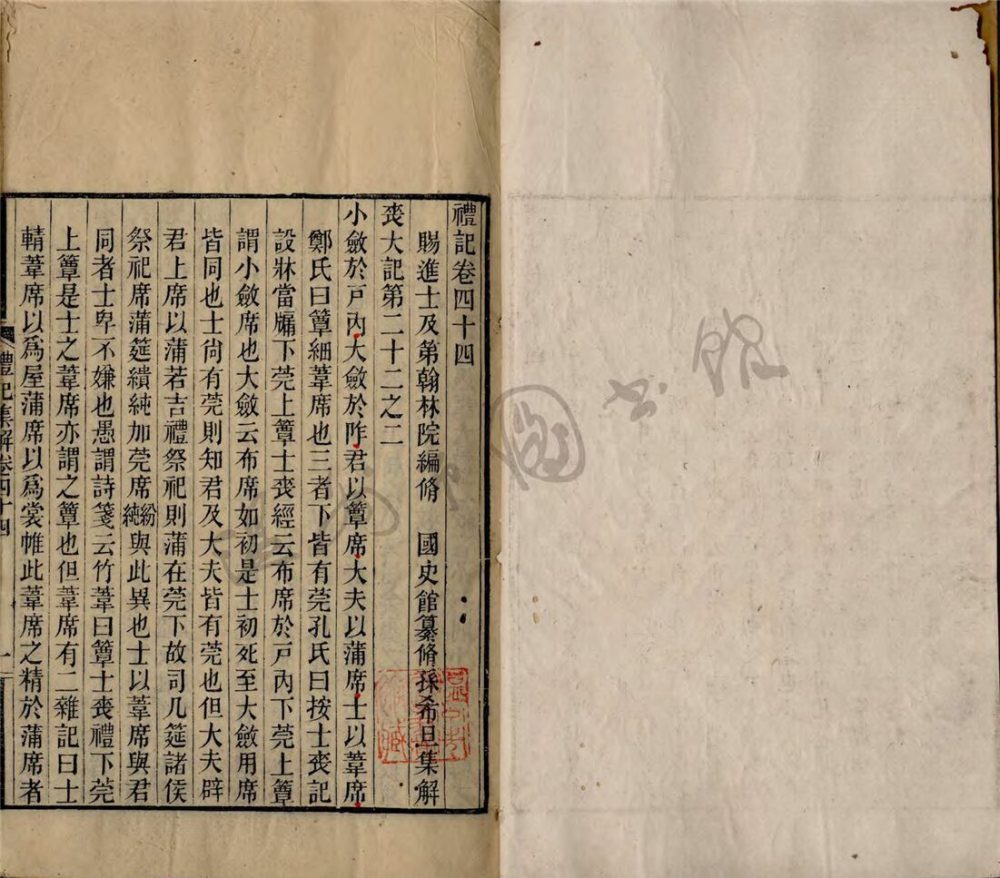 禮記卷四十四
賜進士及第翰林院編脩　國史館纂脩孫希旦集解
喪大記第二十二之二
小斂於戶內大斂於阼君以簟席大夫以蒲席士以葦席
鄭氏曰簟細葦席也三者下皆有莞孔氏曰按士喪記
設牀當牖下莞上簟士喪經云布席於戶內下莞上簟
謂小斂席也大斂云布席如初是士初死至大斂用席
皆同也士尙有莞則知君及大夫皆有莞也但大夫辟
君上席以蒲若吉禮祭祀則蒲在莞下故司几筵諸侯
祭祀席蒲筵繢純加莞席紛純與此異也士以葦席與君
同者士卑不嫌也愚謂詩箋云竹葦曰簟士喪禮下莞
上簟是士之葦席亦謂之簟也但葦席有二雜記曰士
輤葦席以爲屋蒲席以爲裳帷此葦席之精於蒲席者
禮記集解卷四十四
一
圖書館